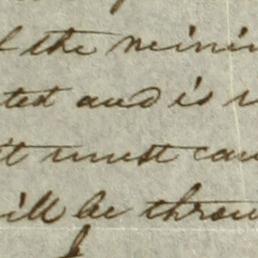 the minin
ted and is
it must cau
ill be throu